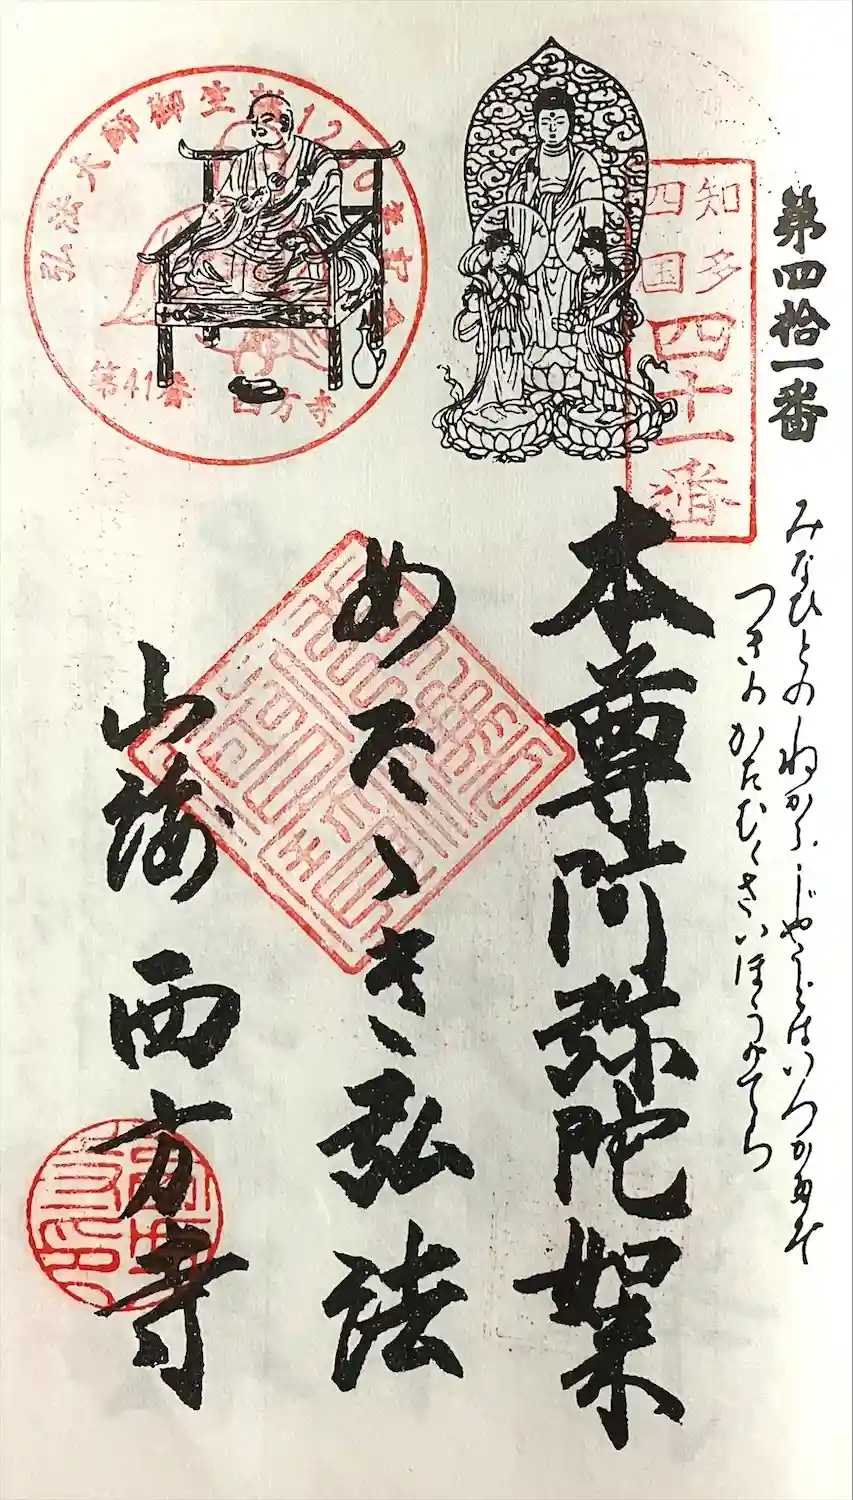 第四拾一番
みなひとのねかふじやうどはいつかたぞ
つきのかたむくさいほうのてら
知多
四国
四十一番
本尊阿弥陀如来
めたゝき弘法
山海 西方寺
弘法大師御生誕1250年記念
第41番 西方寺